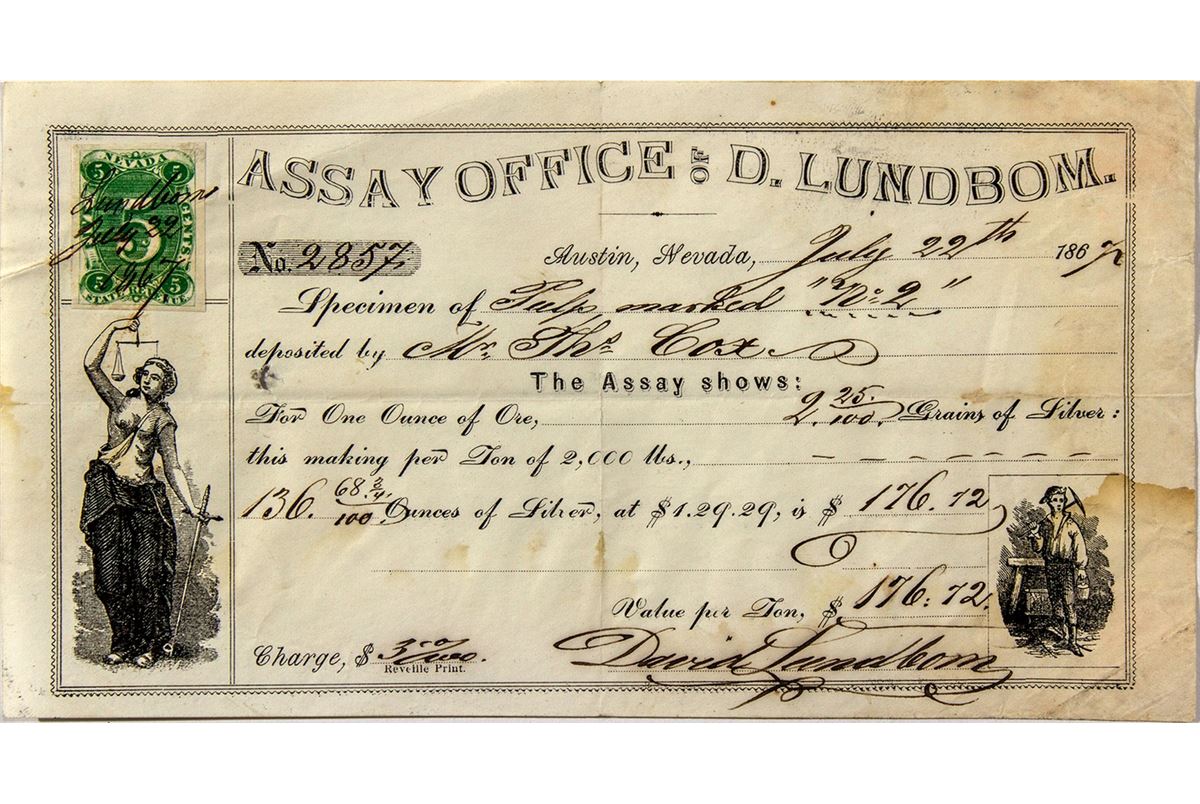 NEVADA
5 5
5
CENTS
5 5
STATE REVENUE
Lundbom
July 22
1867
ASSAY OFFICE OF D. LUNDBOM.
No. 2857. Austin, Nevada, July 22th 1867
Specimen of Pulp marked "No. 2"
deposited by Mr. Thos Cox
The Assay shows:
For One Ounce of Ore, 2. 25./100. Grains of Silver:
this making per Ton of 2,000 lbs.,
136. 68 3/4/100. Ounces of Silver, at $1.29.29, is $ 176.72
Value per Ton, $ 176.72.
Charge, $ 3 00/100.
Reveille Print.
David Lundbom